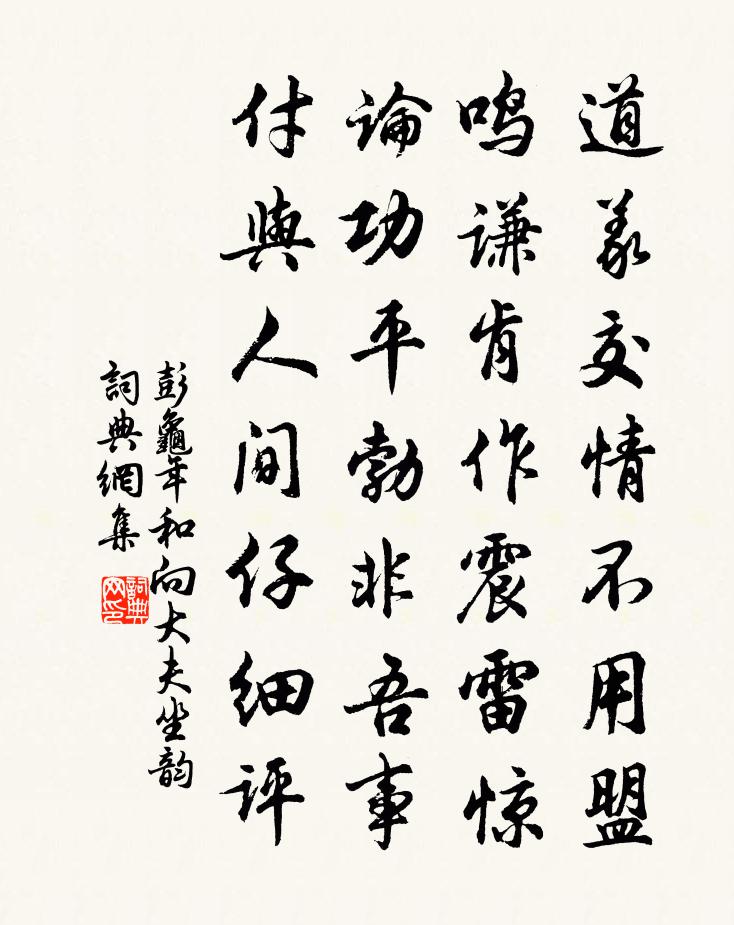 道義交情不用盟
鸣謙肯作震雷惊
論功平勃非吾事
付與人间仔细评
彭龜年和向大夫坐韵
詞典網集
詞典
网印